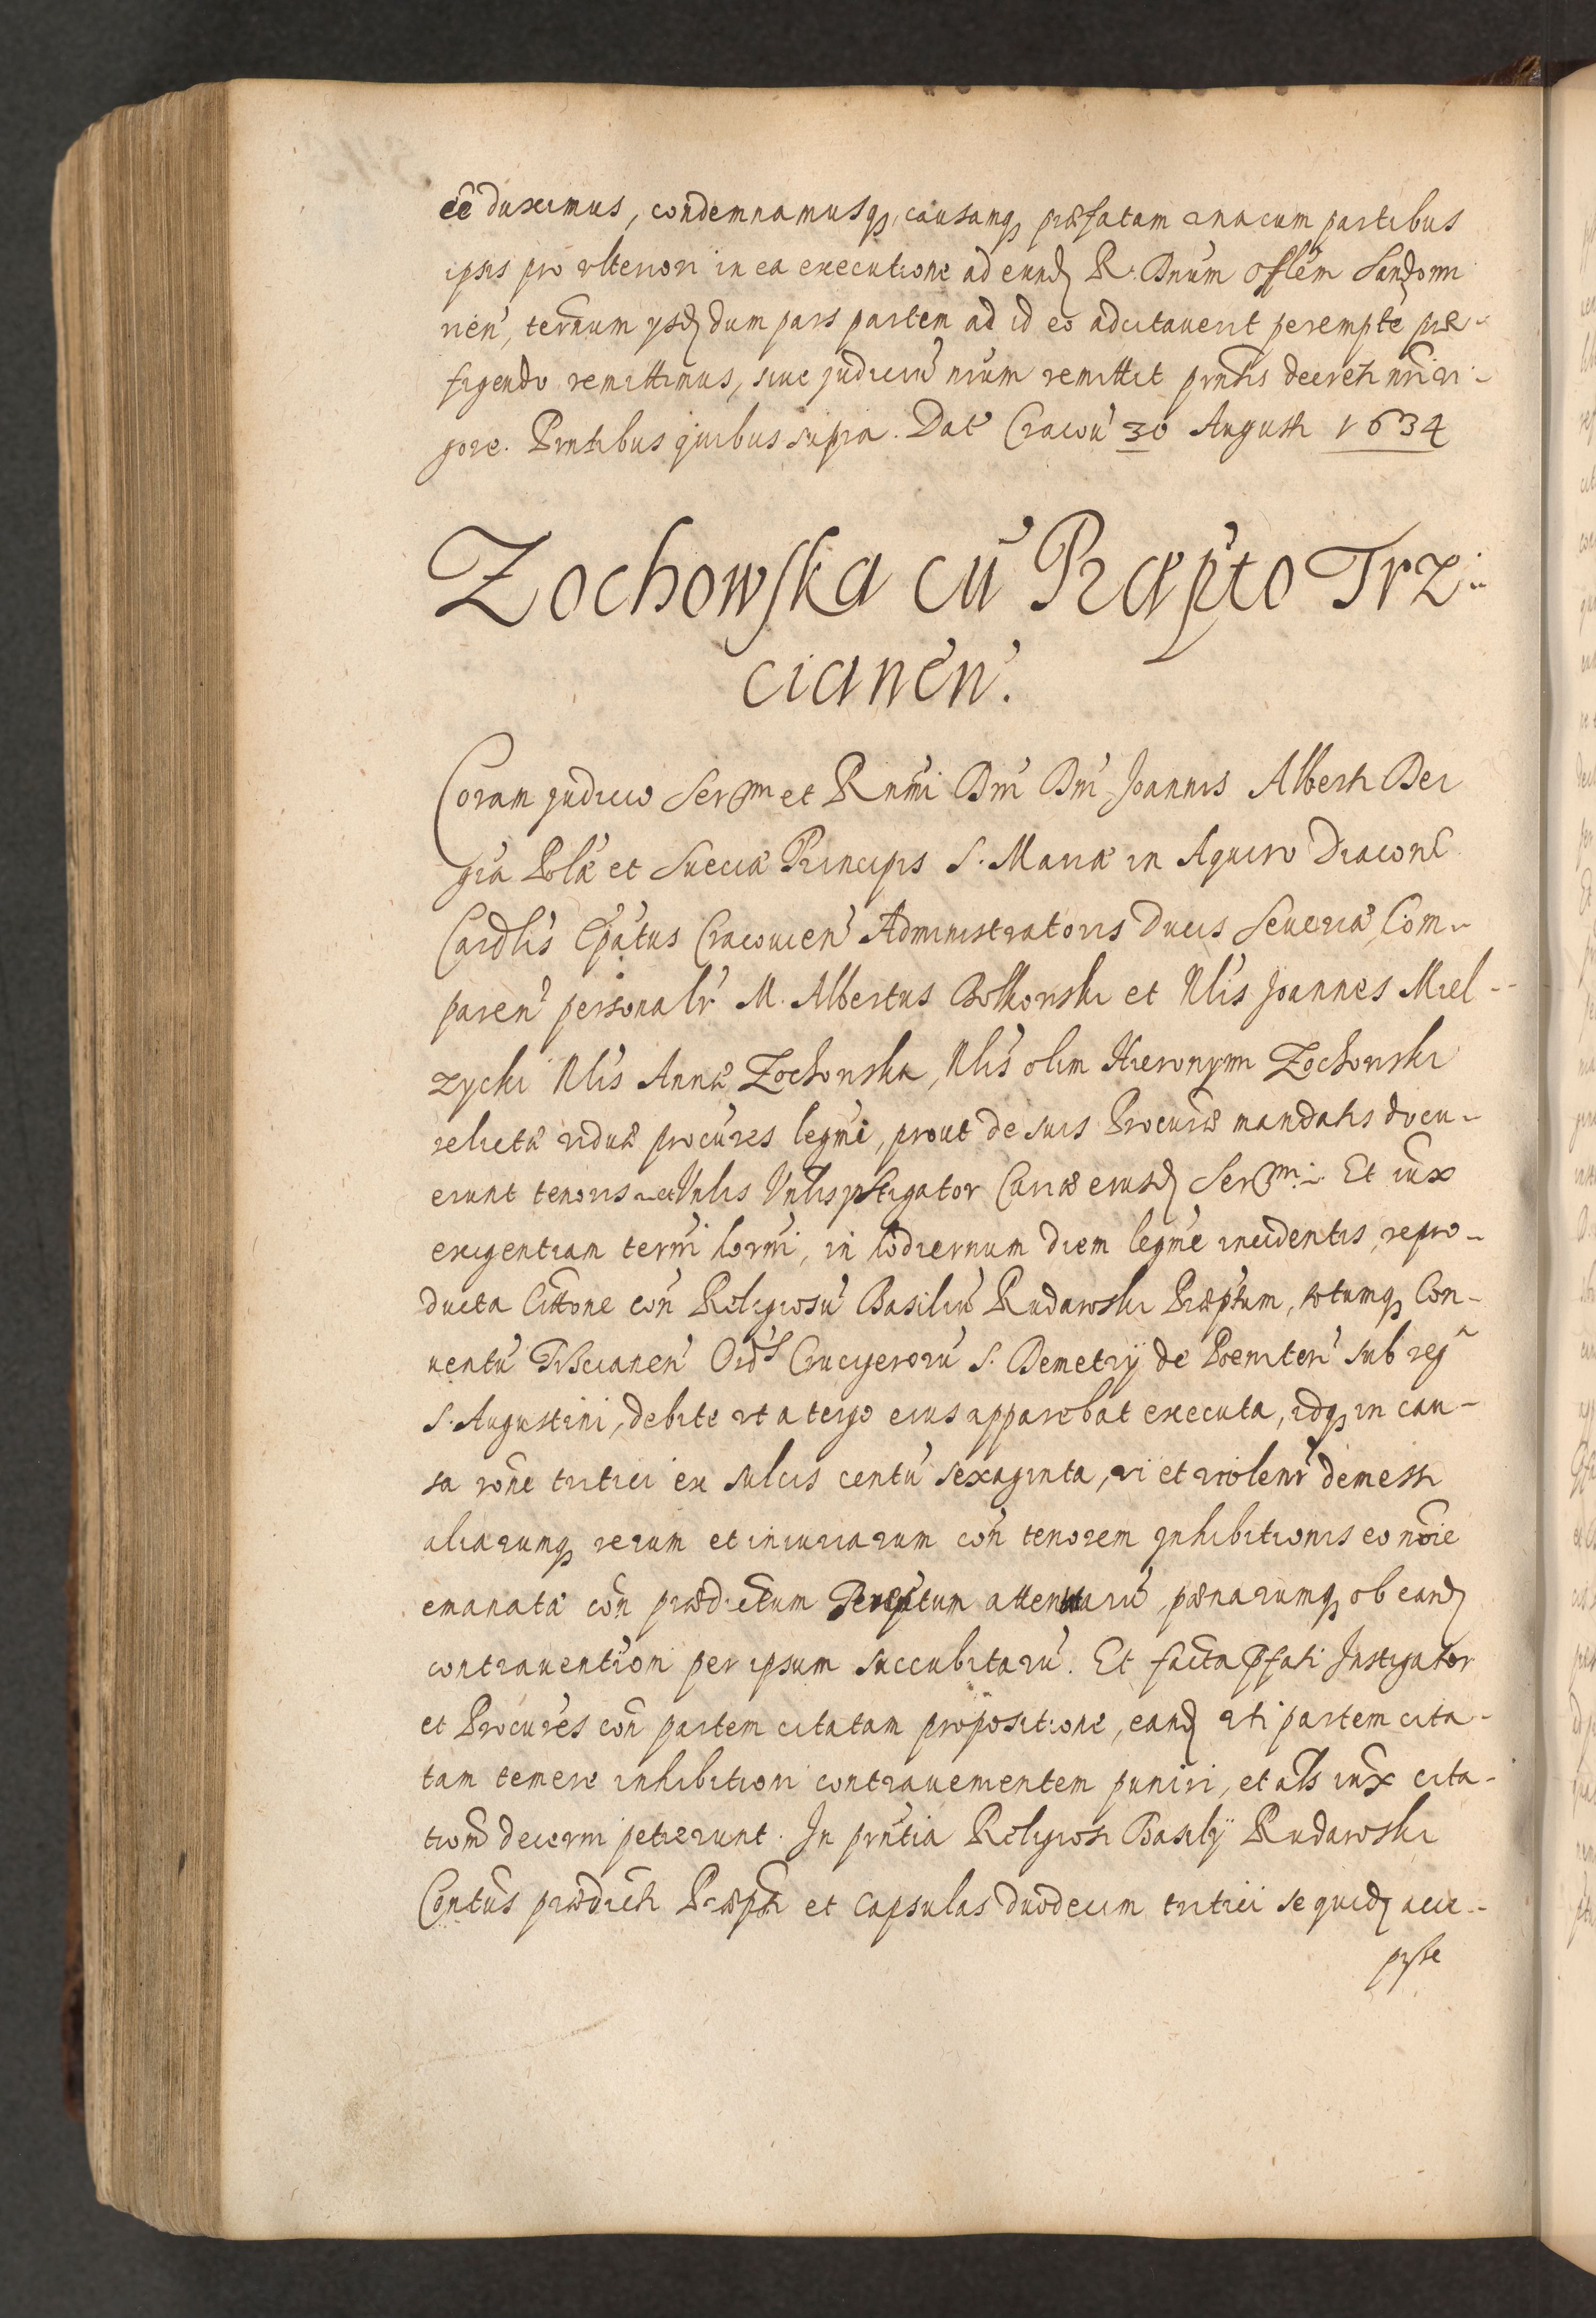 eê duximus, condemnamusq₃, causamq₃ præfatam vnacum partibus
ipsis pro vlteriori in ea executione ad eund R. Dnum Offlem Sandomi
rien, termum ysd dum pars partem ad id eo adcitauerit perempte præ-
figendo remittimus, siue judiciu nrum remittit pntis decreti nri vi-
gore. Pntibus quibus supra. Dat Cracou 30 Augusti 1634
Zochowska cu Præpto Trz-
cianen.
Coram judicio Sermi et Rnmi Dni Dni Joannis Alberti Dei
gra Polæ et Sueciæ Principis S. Mariæ in Aquiro Diaconi
Cardlis Epatus Cracouien Administratoris Ducis Seueriæ, Com-
paren personalr M. Albertus Bolkonski et Nlis Joannes Miel-
zycki Nlis Annæ Zochonska, Nlis olim Hieronymi Zochonski
relictæ viduæ procures legmi, prout de suis Procuræ mandatis docu-
erunt tenoris et Instigator Curiæ eiusd Sermi. Et iux
exigentiam termi hormi, in hodiernum diem legme incidentis, repro-
ducta Cittone con Religiosu Basiliu Rudawski Præptum, totumq₃ Con-
uentu Trzcianen Ords Crucigeroru S. Demetrij de Poeniten sub reg
S. Augustini, debite vt a tergo eius apparebat executa, idq₃ in cau-
sa rone tritici ex sulcis centu sexaginta, vi et violentr demessi
aliarumq₃ rerum et iniuriarum con tenorem Inhibitionis eo noie
emanatæ con prædictum Præptum attentaru, pænarumq₃ ob eand
contrauention per ipsum succubitaru. Et facta pfati Instigator
et Procures con partem citatam propositione, eand vti partem cita-
tam temere inhibitioni contrauenientem puniri, et als iux cita-
tiom decerni petierunt. In pntia Religiosi Basilij Rudawski
Contus prædicti Præpti et capsulas duodecim tritici se quid acce-
pisse